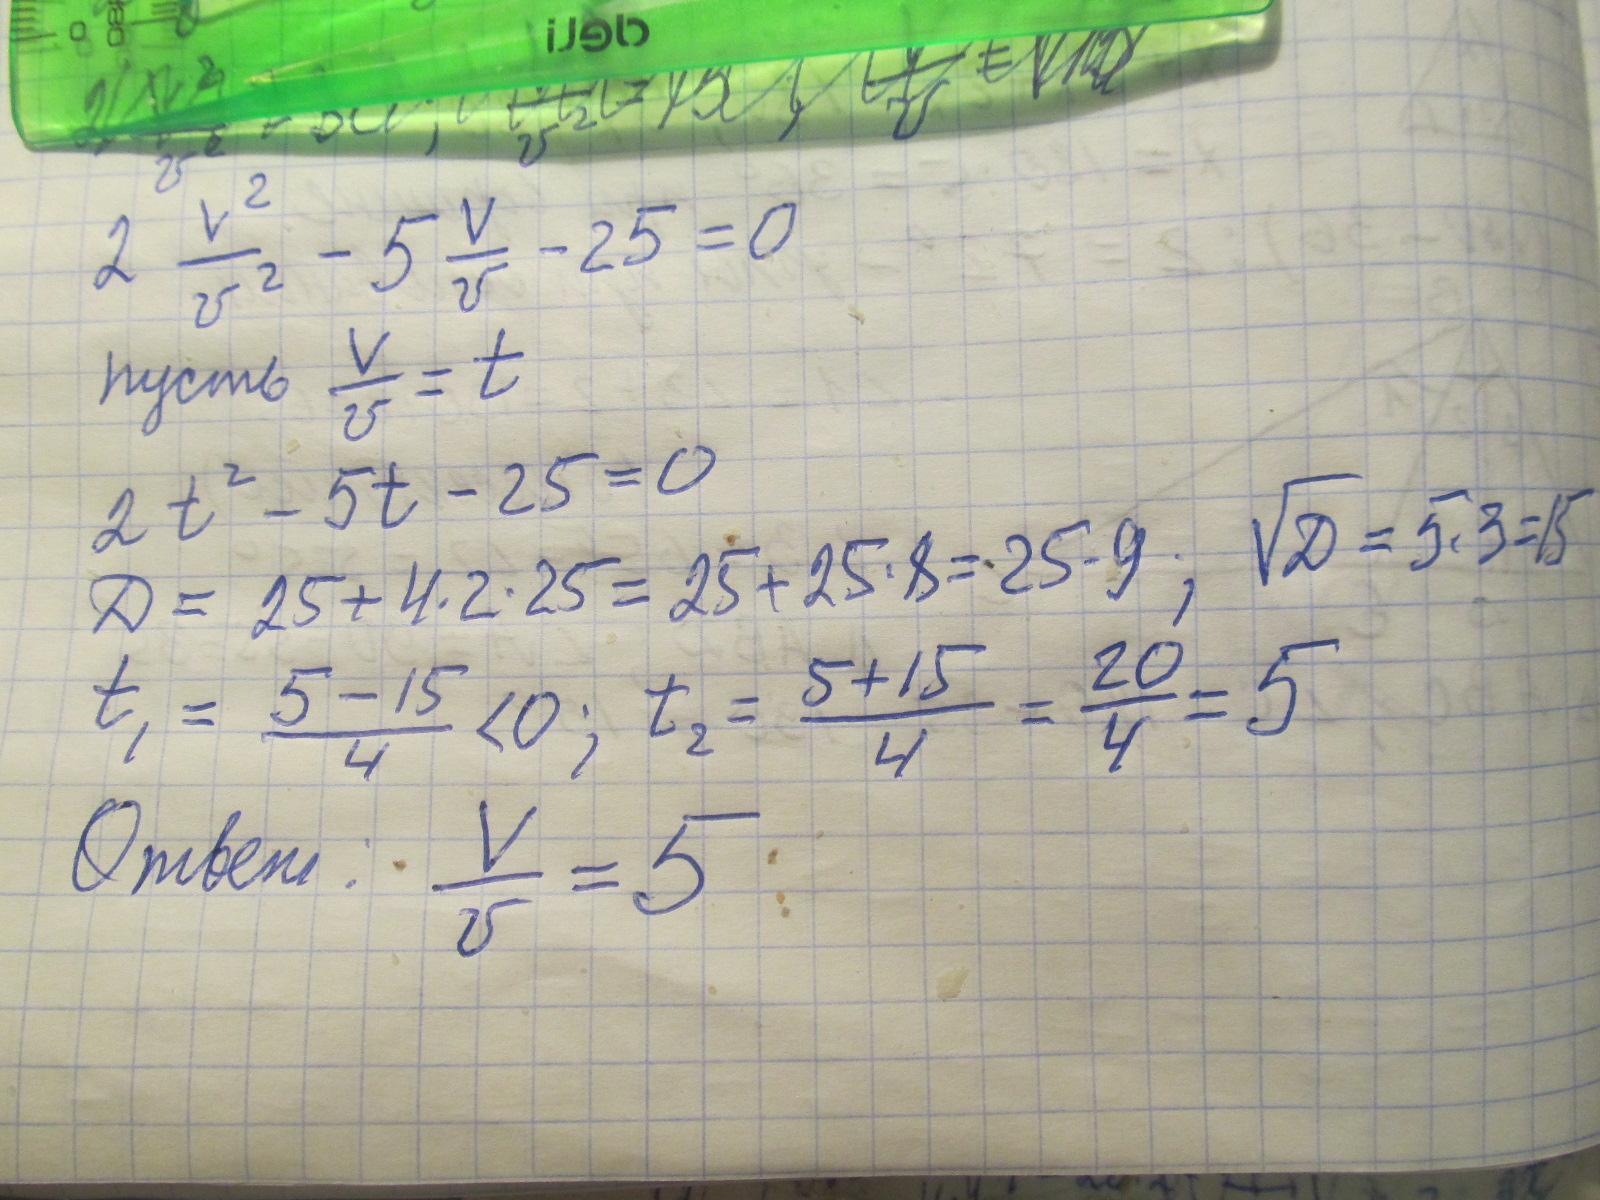 deli
2 V²/v² - 5 V/v - 25 = 0
пусть V/v = t
2t² - 5t - 25 = 0
D = 25 + 4·2·25 = 25 + 25·8 = 25·9 ; √D = 5·3 = 15
t₁ = (5 - 15)/4 < 0 ; t₂ = (5 + 15)/4 = 20/4 = 5
Ответ: V/v = 5